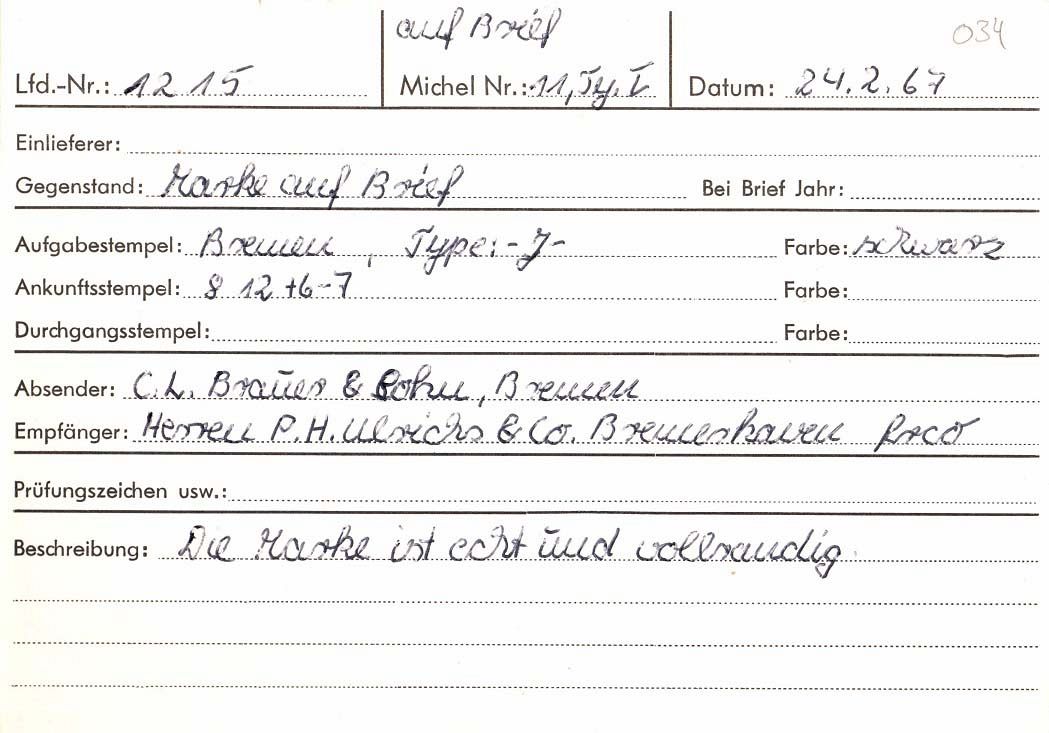 auf Brief
034
Lfd.-Nr.: 1215 Michel Nr.: 11, Ty. I Datum: 24.2.67
Einlieferer:
Gegenstand: Marke auf Brief Bei Brief Jahr:
Aufgabestempel: Bremen, Type: -J- Farbe: schwarz
Ankunftsstempel: 8 12 +6-7 Farbe:
Durchgangsstempel: Farbe:
Absender: C.L. Brauer & Sohn, Bremen
Empfänger: Herren P.H. Ulrichs & Co. Bremerhaven
Prüfungszeichen usw.:
Beschreibung: Die Marke ist echt und vollrandig.